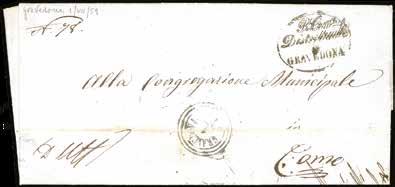 Gravedona 1/VII/59
N. 78.
Distrettuale
GRAVEDONA
Alla Congregazione Municipale
in
Como